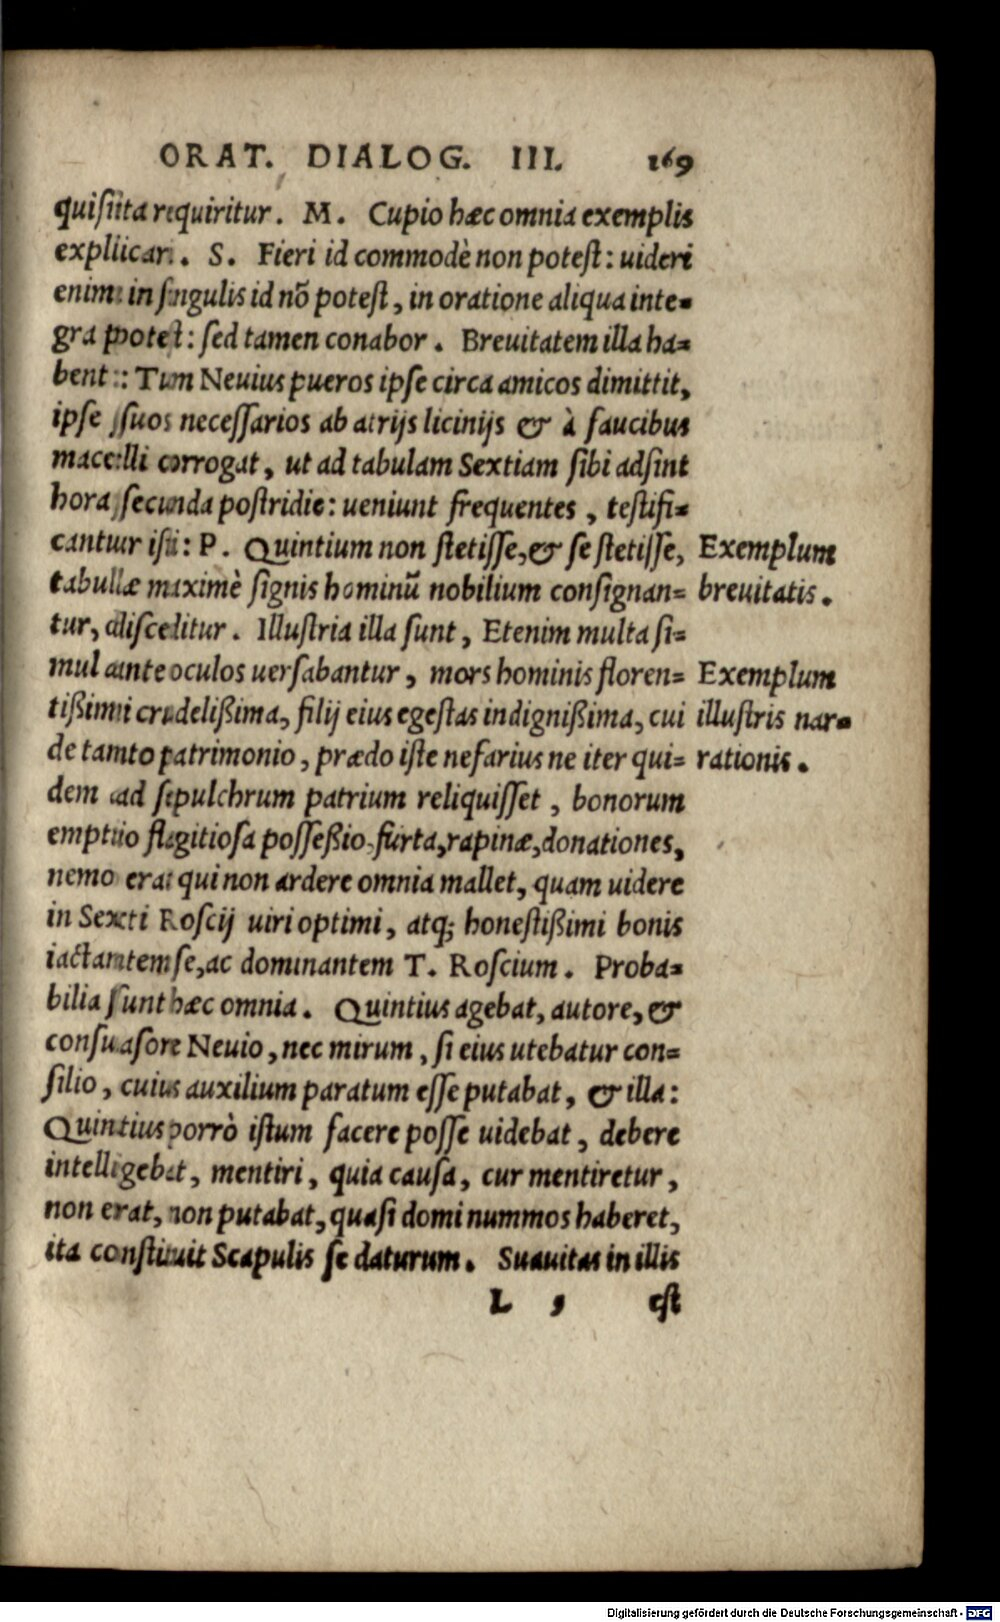 ORAT. DIALOG. III. 169
quisita requiritur. M. Cupio hæc omnia exemplis
explicari. S. Fieri id commodè non potest: uideri
enim in singulis id nõ potest, in oratione aliqua inte-
gra potest: sed tamen conabor. Breuitatem illa ha-
bent: Tum Neuius pueros ipse circa amicos dimittit,
ipse suos necessarios ab atrijs licinijs & à faucibus
macelli corrogat, ut ad tabulam Sextiam sibi adsint
hora secunda postridie: ueniunt frequentes, testifi-
cantur isti: P. Quintium non stetisse, & se stetisse,
Exemplum
tabulæ maximè signis hominũ nobilium consignan-
breuitatis.
tur, disceditur. Illustria illa sunt, Etenim multa si-
mul ante oculos uersabantur, mors hominis floren-
Exemplum
tißimi crudelißima, filij eius egestas indignißima, cui
illustris nar-
de tanto patrimonio, prædo iste nefarius ne iter qui-
rationis.
dem ad sepulchrum patrium reliquisset, bonorum
emptio flagitiosa posseßio, furta, rapinæ, donationes,
nemo erat qui non ardere omnia mallet, quam uidere
in Sexti Roscij uiri optimi, atq; honestißimi bonis
iactantem se, ac dominantem T. Roscium. Proba-
bilia sunt hæc omnia. Quintius agebat, autore, &
consuasore Neuio, nec mirum, si eius utebatur con-
silio, cuius auxilium paratum esse putabat, & illa:
Quintius porrò istum facere posse uidebat, debere
intelligebat, mentiri, quia causa, cur mentiretur,
non erat, non putabat, quasi domi nummos haberet,
ita constituit Scapulis se daturum. Suauitas in illis
L , est
Digitalisierung gefördert durch die Deutsche Forschungsgemeinschaft - DFG